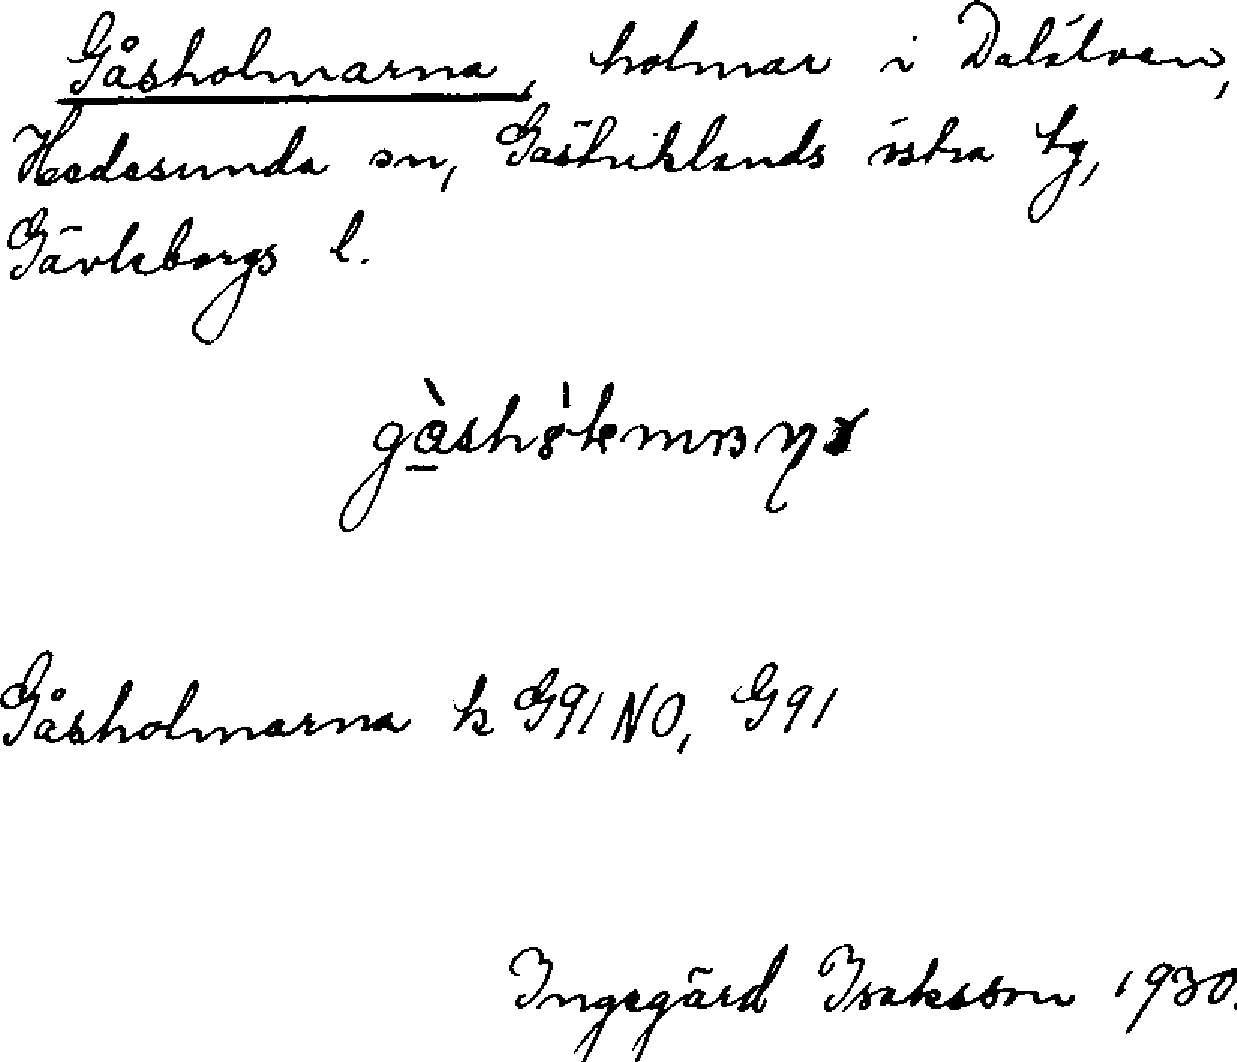 Gåsholmarna, holmar i Dalälven,
Hedesunda sn, Gästriklands östra tg,
Gävleborgs l.
Gåsholmarna k G91NO, G91
Ingegärd Isaksson 1930.